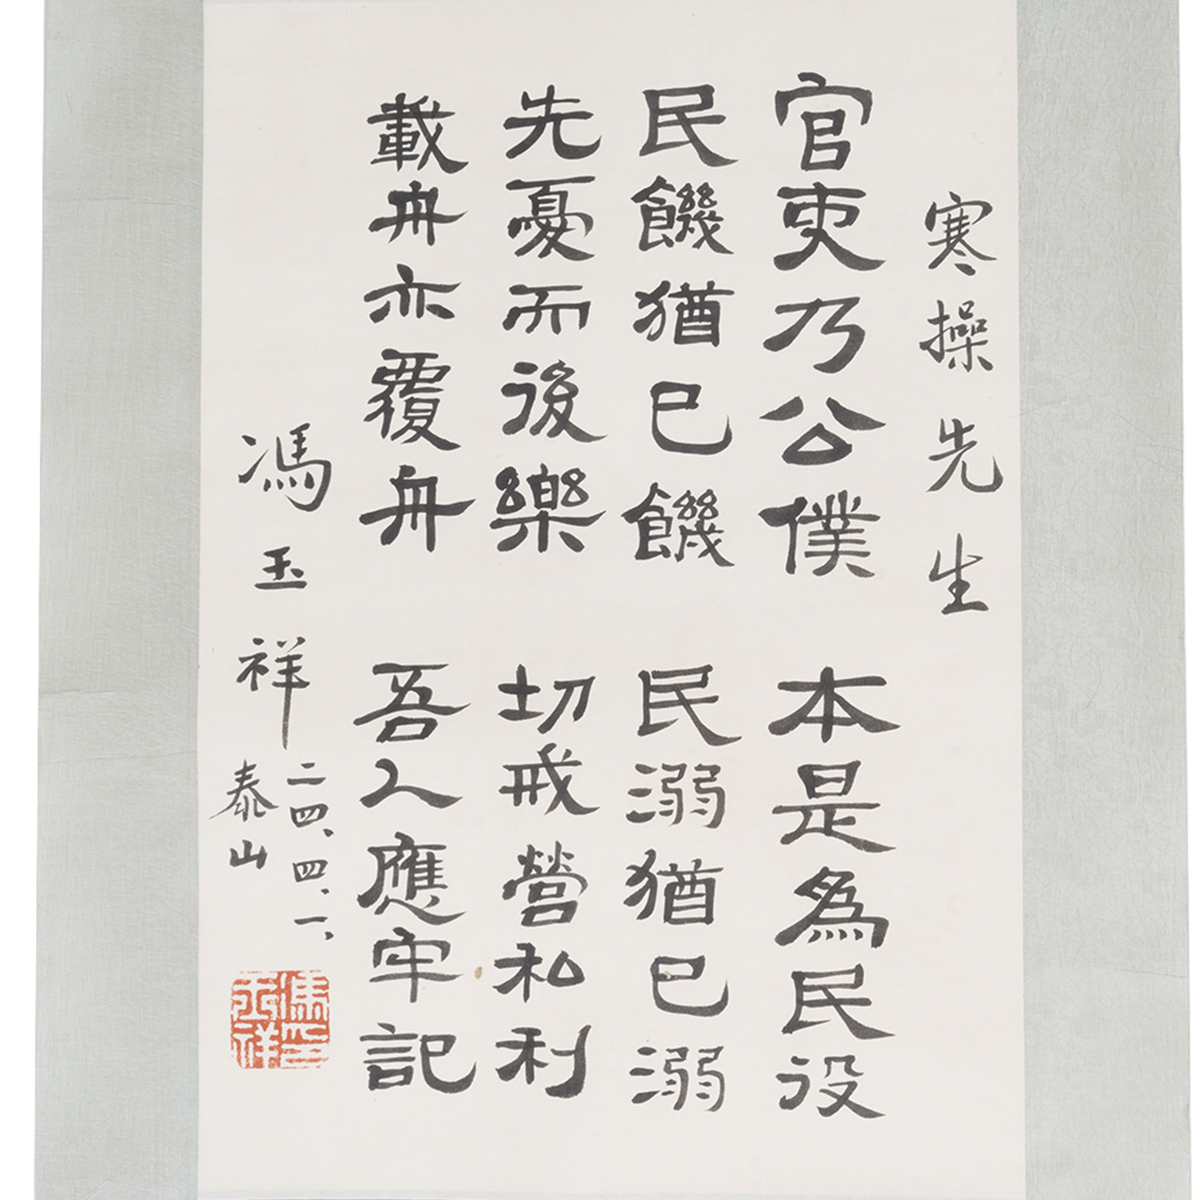 寒操先生
官吏乃公僕 本是為民役
民饑猶己饑 民溺猶己溺
先憂而後樂 切戒營私利
載舟亦覆舟 吾人應牢記
馮玉祥
二四、四、一、
泰山
馮玉祥印